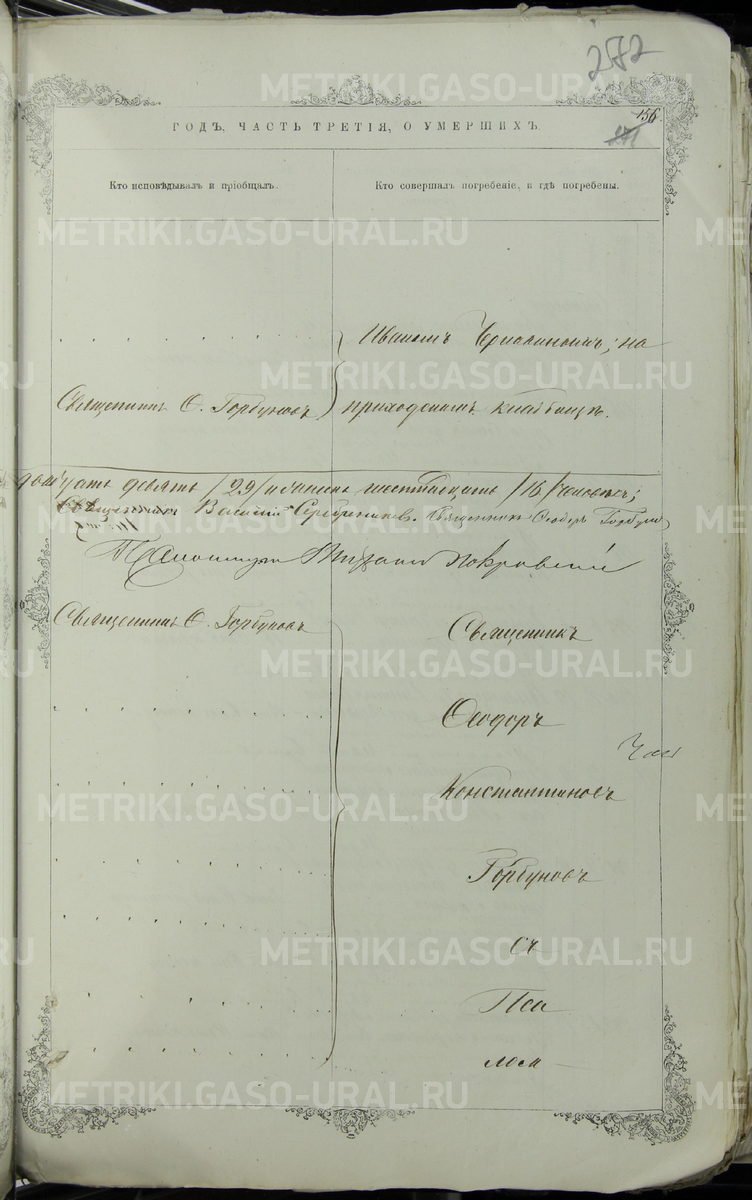 282
156
ГОДЪ, ЧАСТЬ ТРЕТІЯ, О УМЕРШИХЪ.
Кто исповѣдывалъ и пріобщалъ.
Кто совершалъ погребеніе, и гдѣ погребены.
Иваномъ ; на
Священникъ Ѳ. Горбуновъ
приходскомъ кладбищѣ.
двадцать девять /29/ шестнадцать /16/ человѣкъ;
Священникъ Василій Серебренниковъ. Священникъ Ѳеодоръ Горбуновъ
Псаломщикъ Покровскій
Священникъ Ѳ. Горбуновъ
Священникъ
Ѳеодоръ
Константиновъ
Горбуновъ
съ
Пса
лом
METRIKI.GASO-URAL.RU